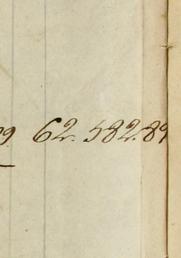 9 62.582.89